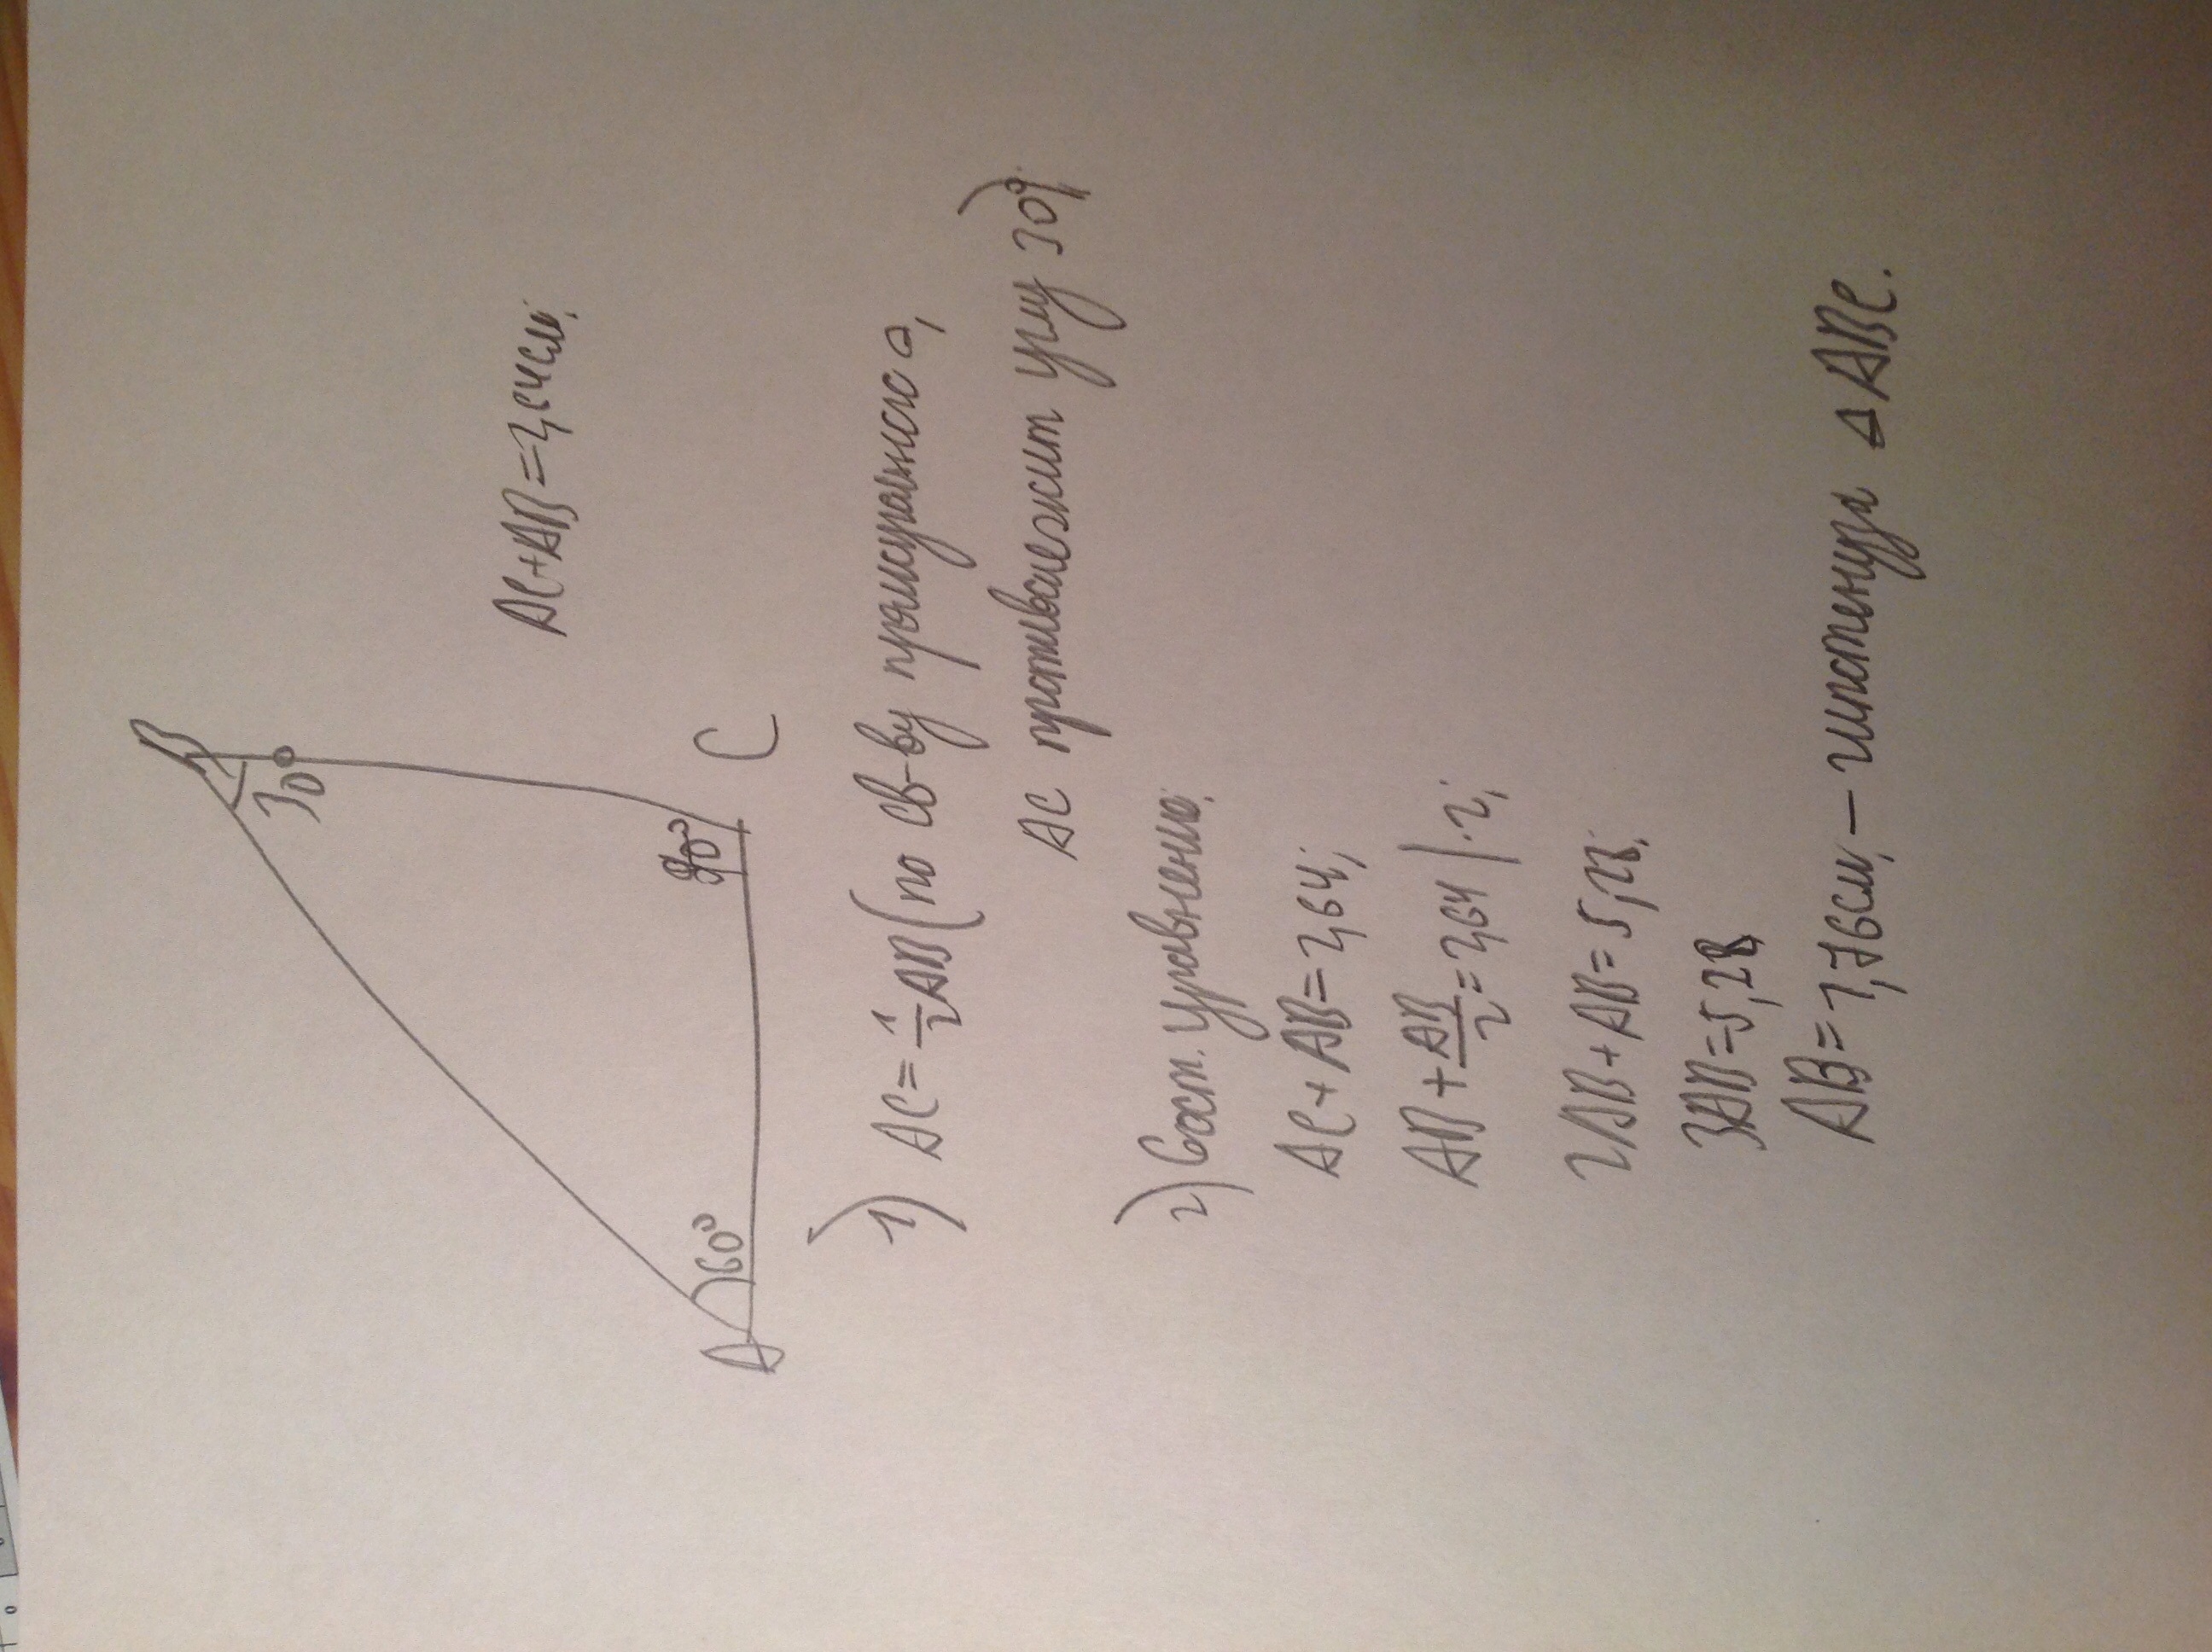 B
30°
AC+AB=2,64см;
60°
90°
A
C
1) AC=1/2AB (по св-ву прямоугольного Δ,
AC противолежит углу 30°)
2) Сост. уравнение:
AC+AB=2,64;
AB+AB/2=2,64 |·2;
2AB+AB=5,28;
3AB=5,28
AB=1,76см, – гипотенуза ΔABC.